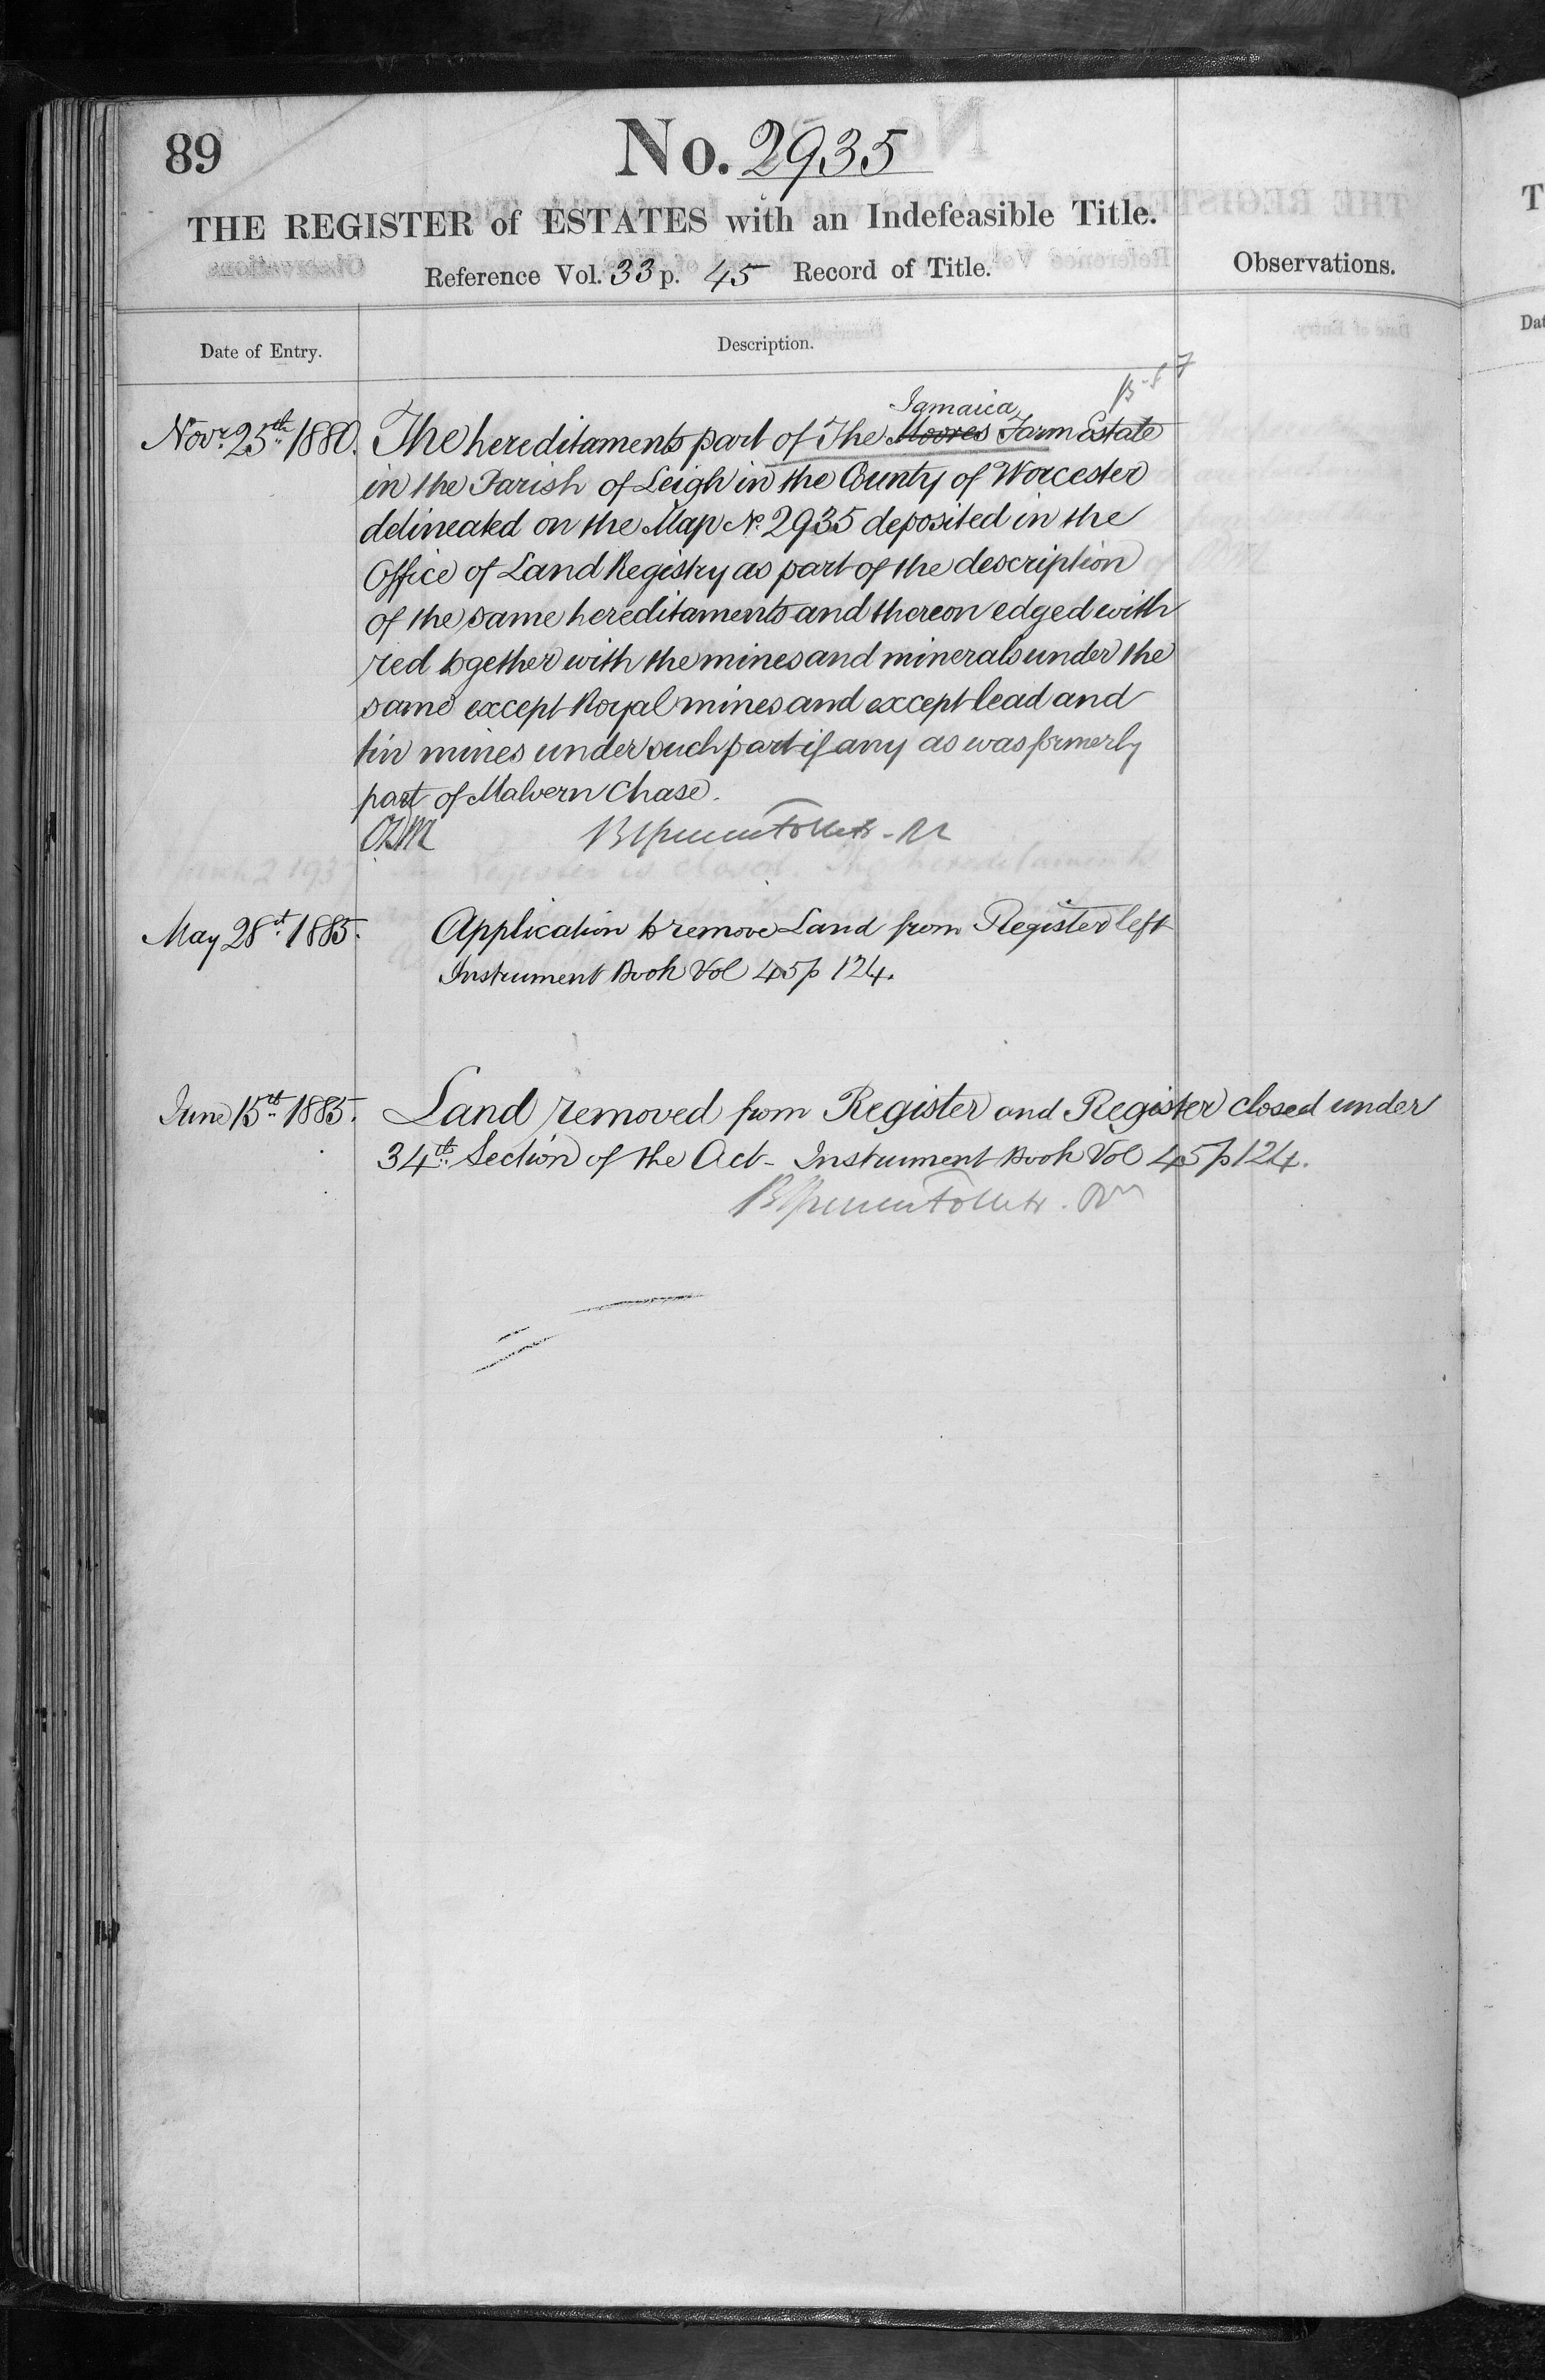 89
No. 2935
THE REGISTER of ESTATES with an Indefeasible Title.
Reference Vol. 33 p. 45 Record of Title.
Observations.
Date of Entry.
Description.
Jamaica
Novr. 25th 1880. The hereditaments part of The Moores Farm Estate
in the Parish of Leigh in the County of Worcester
delineated on the Map No. 2935 deposited in the
Office of Land Registry as part of the description
of the same hereditaments and thereon edged with
red together with the mines and minerals under the
same except Royal mines and except lead and
tin mines under such part if any as was formerly
part of Malvern Chase.
May 28th 1885. Application to remove Land from Register left
Instrument Book Vol 45 p 124.
June 15th 1885. Land removed from Register and Register closed under
34th Section of the Act - Instrument Book Vol 45 p 124.